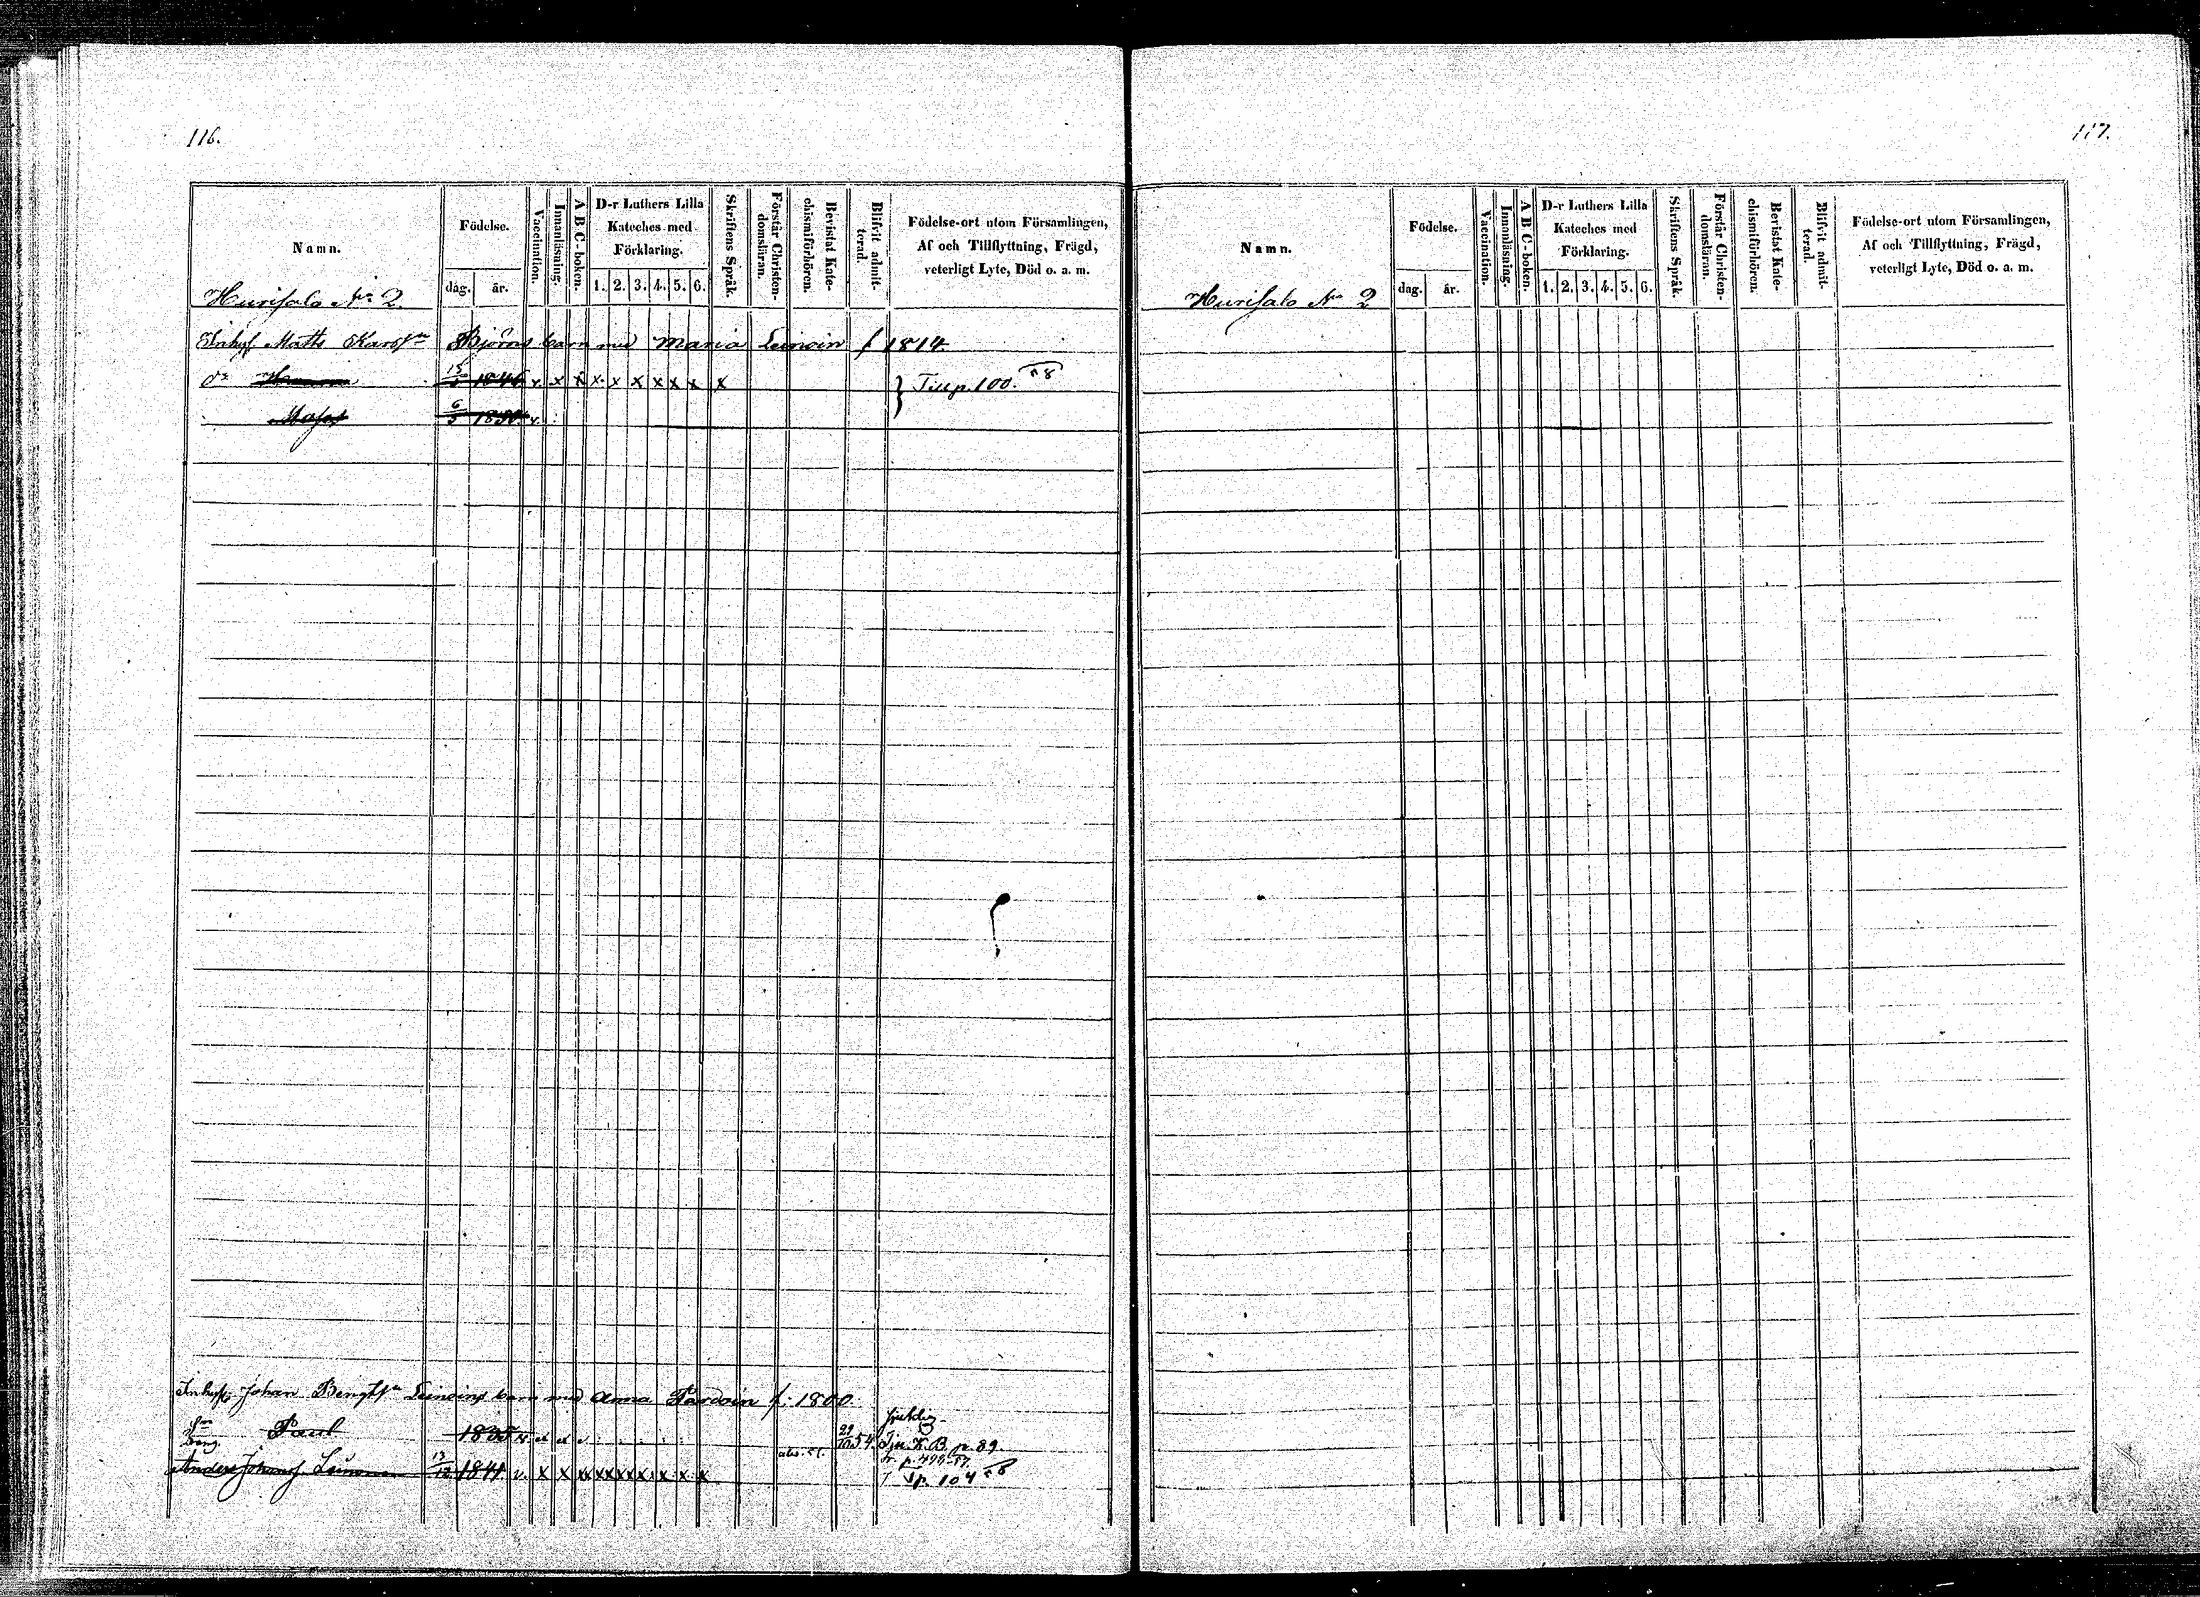 116.
Namn.
Födelse.
dag. år.
Vaccination.
Innanläsning.
A B C-boken.
D-r Luthers Lilla
Kateches med
Förklaring.
1. 2. 3. 4. 5. 6.
Skriftens Språk.
Förstår Christen-
domsläran.
Bevistat Kate-
chismiförhören.
Blifvit admit-
terad.
Födelse-ort utom Församlingen,
Af och Tillflyttning, Frägd,
veterligt Lyte, Död o. a. m.
Hurisalo No 2.
Inhys Matts Björns barn med Maria f 1814.
15 1846 v. x x x x x x x x x } Till p. 100.
6/3 v.
Inhys Johan Bengts barn med Anna f: 1800.
Paul 1835 v. 29/10 54. K. B. p. 89.
Anders Johans Leinonen 1841 v. x x x x x x x x x x p. 104
117.
Namn.
Födelse.
dag. år.
Vaccination.
Innanläsning.
A B C-boken.
D-r Luthers Lilla
Kateches med
Förklaring.
1. 2. 3. 4. 5. 6.
Skriftens Språk.
Förstår Christen-
domsläran.
Bevistat Kate-
chismiförhören.
Blifvit admit-
terad.
Födelse-ort utom Församlingen,
Af och Tillflyttning, Frägd,
veterligt Lyte, Död o. a. m.
Hurisalo No 2